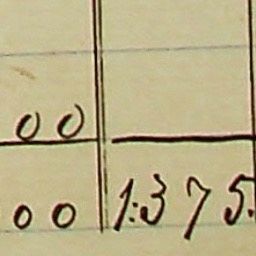 00
00 1:375.